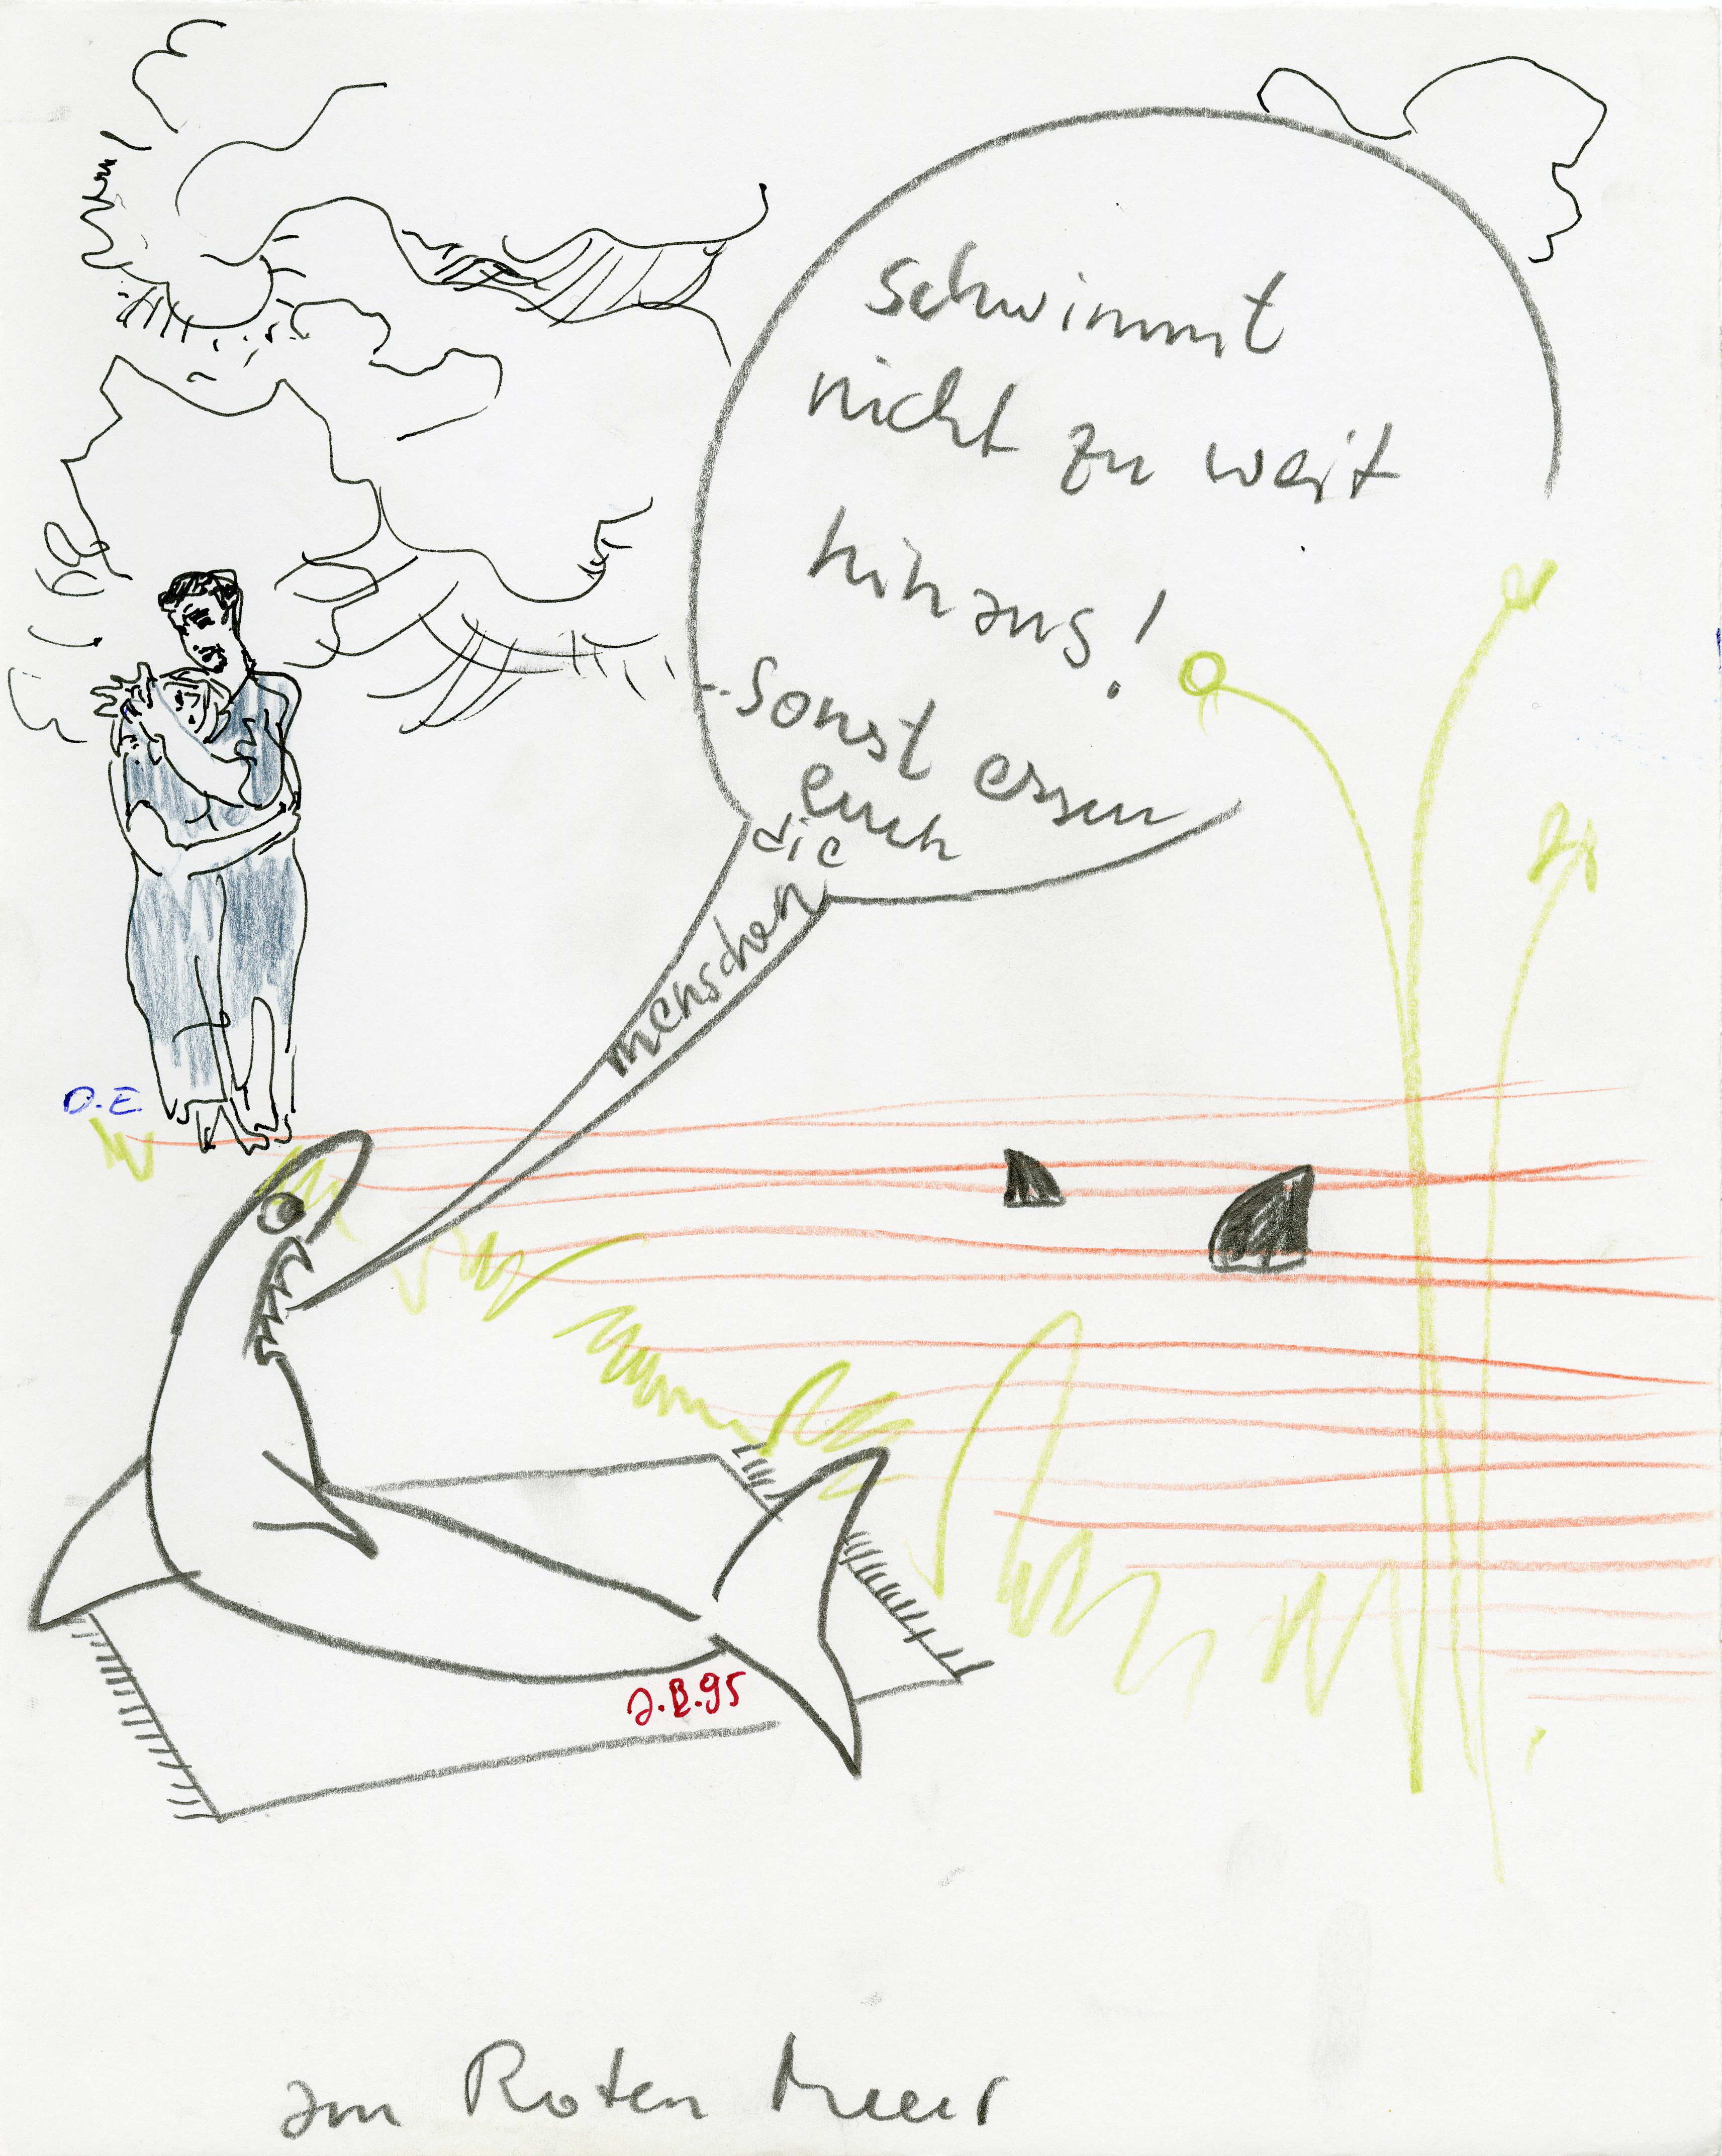 schwimmt
nicht zu weit
hinaus!
sonst essen
euch
die
menschen
D.E.
J.B.95
am Roten Meer